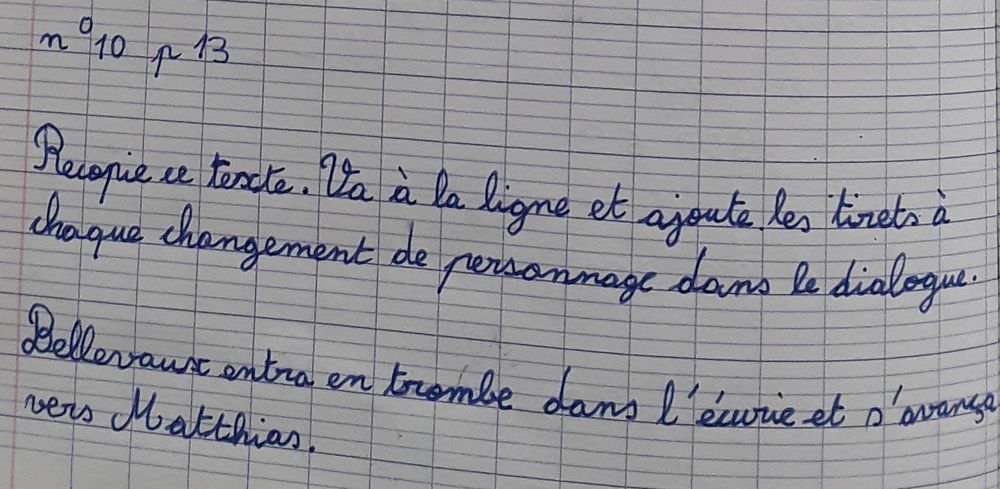 n°10 p 13
Recopie ce texte. Va à la ligne et ajoute les tirets à
chaque changement de personnage dans le dialogue.
Bellevaux entra en trombe dans l'écurie et s'avança
vers Matthias.